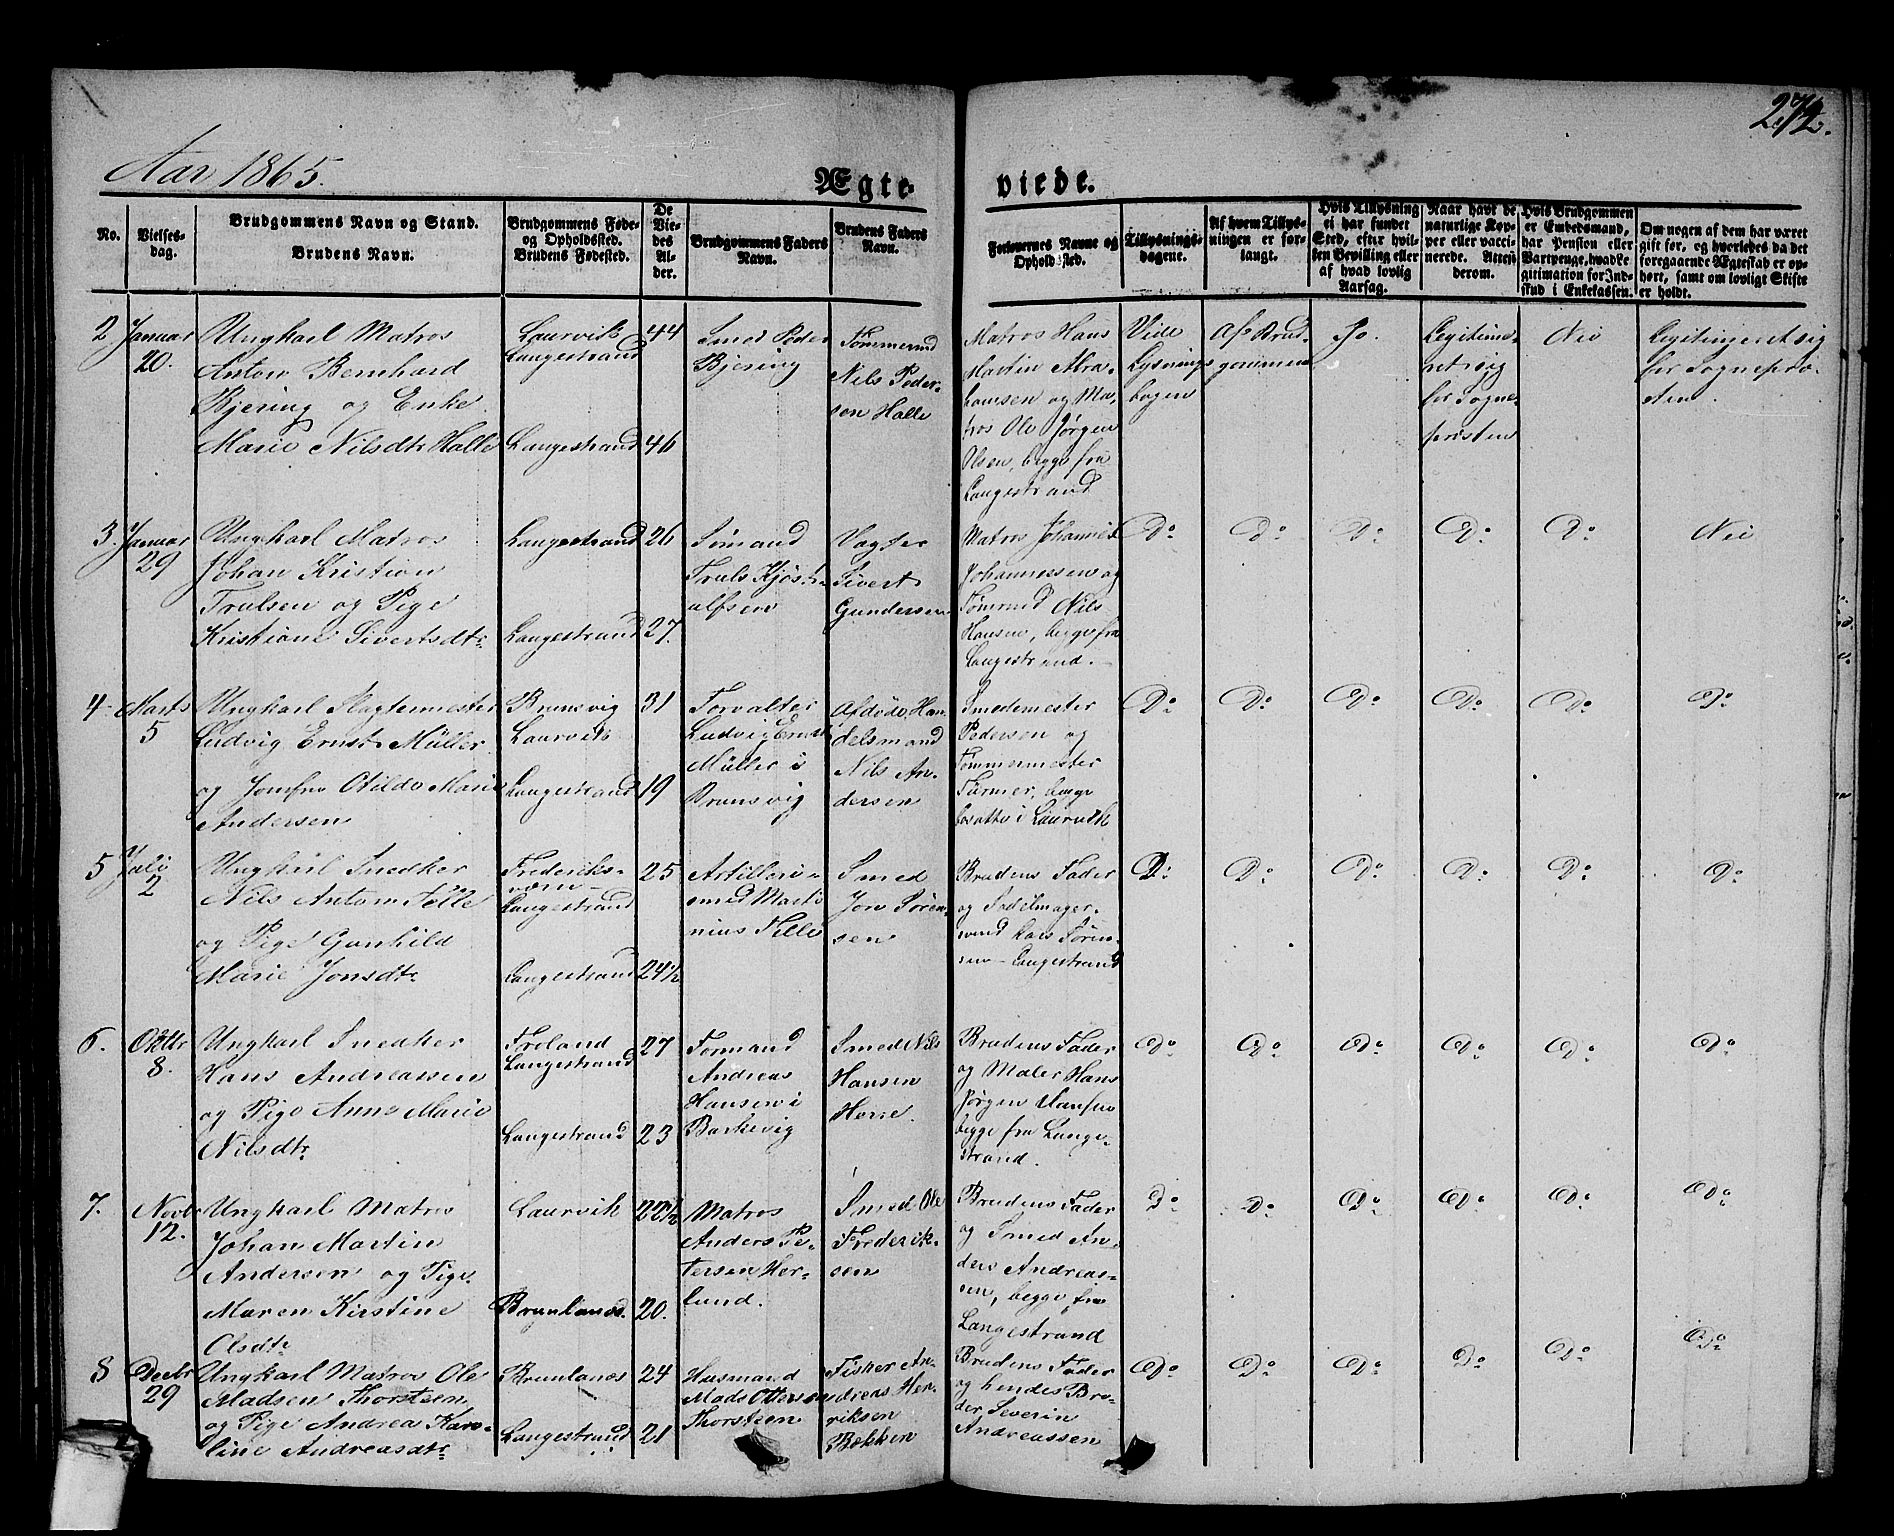 272.
Aar 1865.
Ægteviede.
No.
Vielsesdag.
Brudgommens Navn og Stand.
Brudens Navn.
Brudgommens Føde-
og Opholdssted.
Brudens Fødested.
De
Vie-
des
Al-
der.
Brudgommens Faders
Navn.
Brudens Faders
Navn.
Forlovernes Navne og
Opholdssted.
Tillysnings-
dagene.
Af hvem Tillys-
ningen er for-
langt.
Hvis Tillysning
ei har fundet
Sted, efter hvil-
ken Bevilling eller
af hvad lovlig
Aarsag.
Naar havt de
naturlige Kop-
per eller vacci-
nerede. Attest
derom.
Hvis Brudgommen
er Embedsmand,
har Pension eller
Vartpenge, hvad Le-
gitimation for Ind-
skud i Enkekassen.
Om nogen af dem har været
gift før, og hvorledes da det
foregaaende Ægteskab er op-
hørt, samt om lovligt Skifte
er holdt.
2
Januar
20.
Ungkarl Matros
Anton Bernhard
Bjering og Enke
Marie Nilsdtr Halle
Laurvik
Langestrand
Langestrand
44
46
Smed Peder
Bjering
Tømmermd
Nils Peder-
sen Halle
Matros Hans
Martin Abra-
hamsen og Ma-
tros Ole Jørgen
Olsen, begge fra
Langestrand
Vide
Lysnings
bogen
Af Brud-
gommen
Jo.
Legitime-
ret sig
for Sogne-
præsten
Nei
Legitimeret sig
for Sognepræ-
sten.
3.
Januar
29
Ungkarl Matros
Johan Kristian
Trulsen og Pige
Kristiane Sivertsdtr
Langestrand
Langestrand
26
27.
Sømand
Truls Kjøst-
ulfsen
Vagter
Sivert
Gundersen
Matros Johannes
Johannessen og
Tømmrmd Nils
Hansen, begge fra
Langestrand.
Do
Do
Do
Do
Do
Nei
4
Marts
5
Ungkarl Slagtermester
Ludvig Ernst Müller
og Jomfru Ovilde Marie
Andersen
Brunsvig
Laurvik
Langestrand
31
19
Forvalter
Ludvig Ernst
Müller i
Brunsvig
Afdøde Han-
delsmand
Nils An-
dersen
Smedemester
Pedersen og
Tømmermester
Farmer, begge
bosatte i Laurvik
Do
Do
Do
Do
Do
Do
5
Juli
2
Ungkarl Snedker
Nils Anton Pelle
og Pige Gunhild
Marie Jonsdtr
Frederiks-
værn -
Langestrand
Langestrand
25
24½
Artilleri-
smed Marti-
nius Pelle
Smed
Jon Søren-
sen
Brudens Fader
og Sadelmager-
svend Lars Søren-
sen - Langestrand
Do
Do
Do
Do
Do
Do
6.
Oktbr
8.
Ungkarl Snedker
Hans Andreassen
og Pige Anne Marie
Nilsdtr
Froland
Langestrand
Langestrand
27
23
Formand
Andreas
Hansen i
Barkevig
Smed Nils
Hansen
Herre.
Brudens Fader
og Maler Hans
Jørgen Hansen
begge fra Lange-
strand.
Do
Do
Do
Do
Do
Do
7.
Novbr
12.
Ungkarl Matros
Johan Martin
Andersen og Pige
Maren Kirstine
Olsdtr
Laurvik
Brunlanes.
22½
20.
Matros
Anders Pe-
tersen Her-
lund.
Smed Ole
Frederik-
sen
Brudens Fader
og Smed An-
ders Andreas-
sen, begge fra
Langestrand
Do
Do
Do
Do
Do
Do
8
Decbr
29
Ungkarl Matros Ole
Madsen Thorsteen
og Pige Andrea Karo-
line Andreasdtr
Brunlanes
Langestrand
24
21
Husmand
Mads Ottersen
Thorsteen
Fisker An-
dreas Hen-
riksen
Bækken
Brudens Fader
og hendes Bro-
der Severin
Andreassen
Do
Do
Do
Do
Do
Do